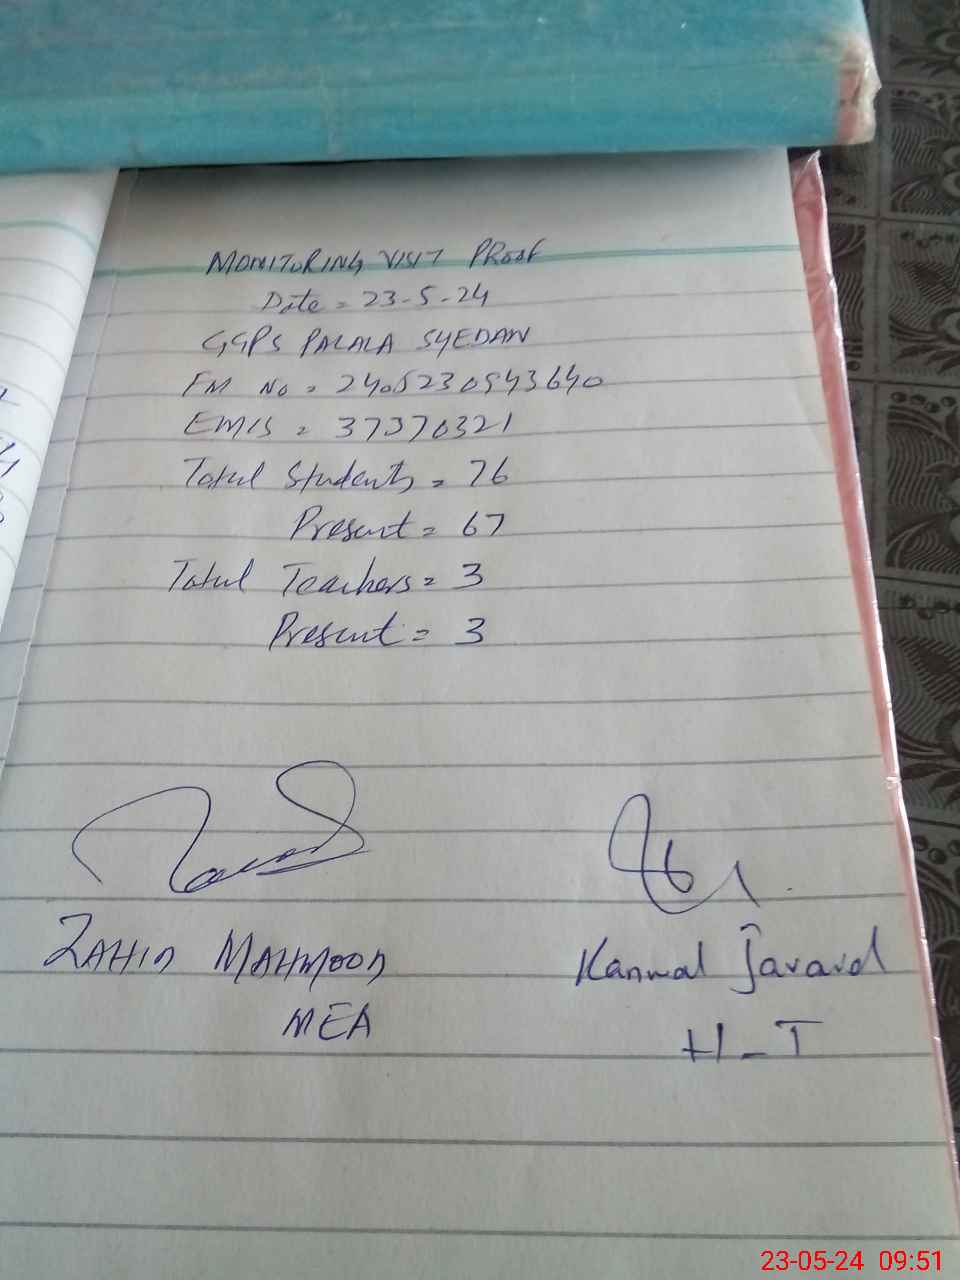 MONITORING VISIT PROOF
Date = 23-5-24
GGPS PALALA SYEDAN
FM No = 2405230943640
EMIS = 37370321
Total Students = 76
Present = 67
Total Teachers = 3
Present = 3
ZAHID MAHMOOD
MEA
Kanwal Javaid
H-T
23-05-24 09:51